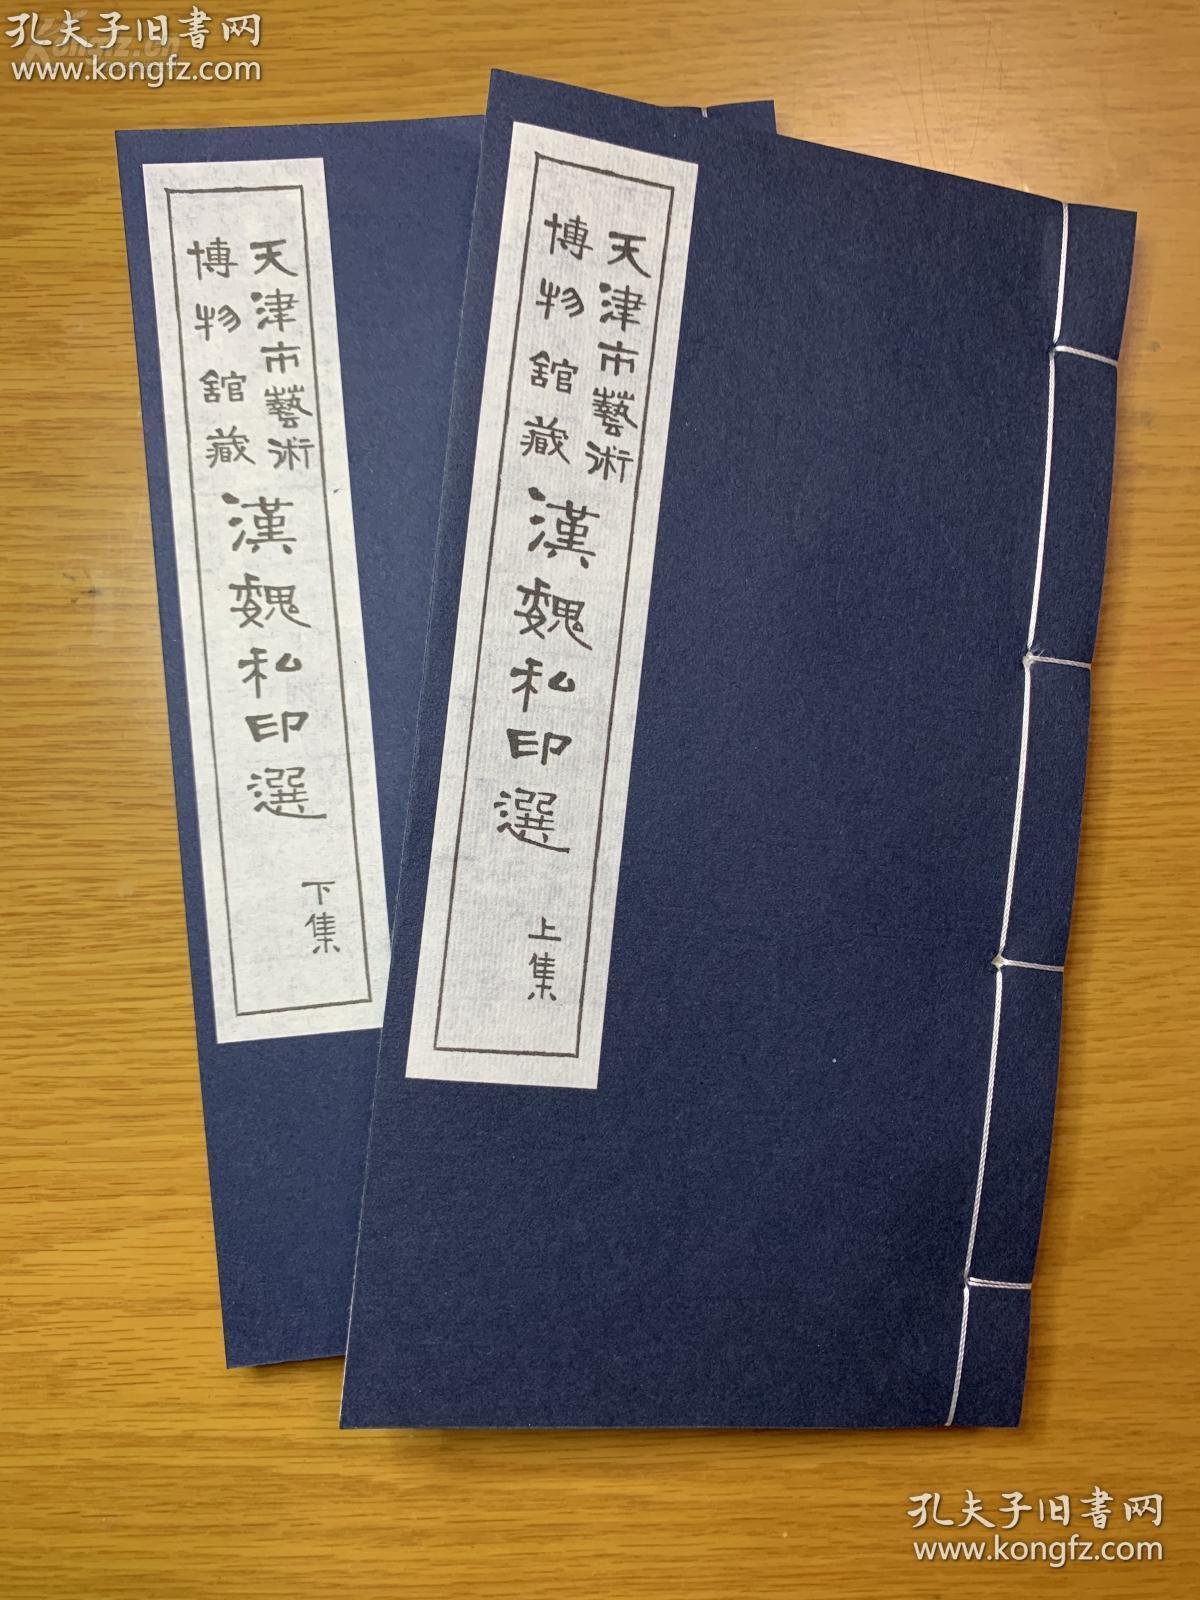 孔夫子旧书网
www.kongfz.com
天津市藝術
博物館藏
漢魏私印選
下集
天津市藝術
博物館藏
漢魏私印選
上集
孔夫子旧书网
www.kongfz.com